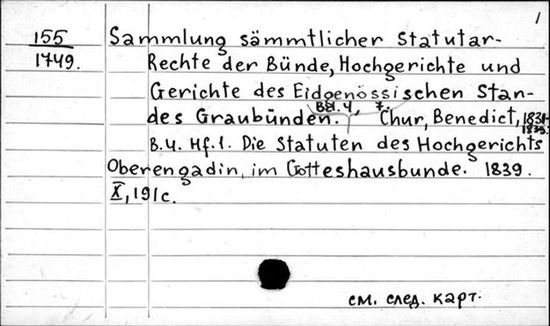 1
155
1749.
Sammlung sämmtlicher Statutar-
Rechte der Bünde, Hochgerichte und
Gerichte des Eidgenössischen Stan-
Bd. 4, 7.
des Graubünden. Chur, Benedict, 1831-
1839.
B.4. Hf.1. Die Statuten des Hochgerichts
Oberengadin, im Gotteshausbunde. 1839.
X, 191c.
см. след. карт.